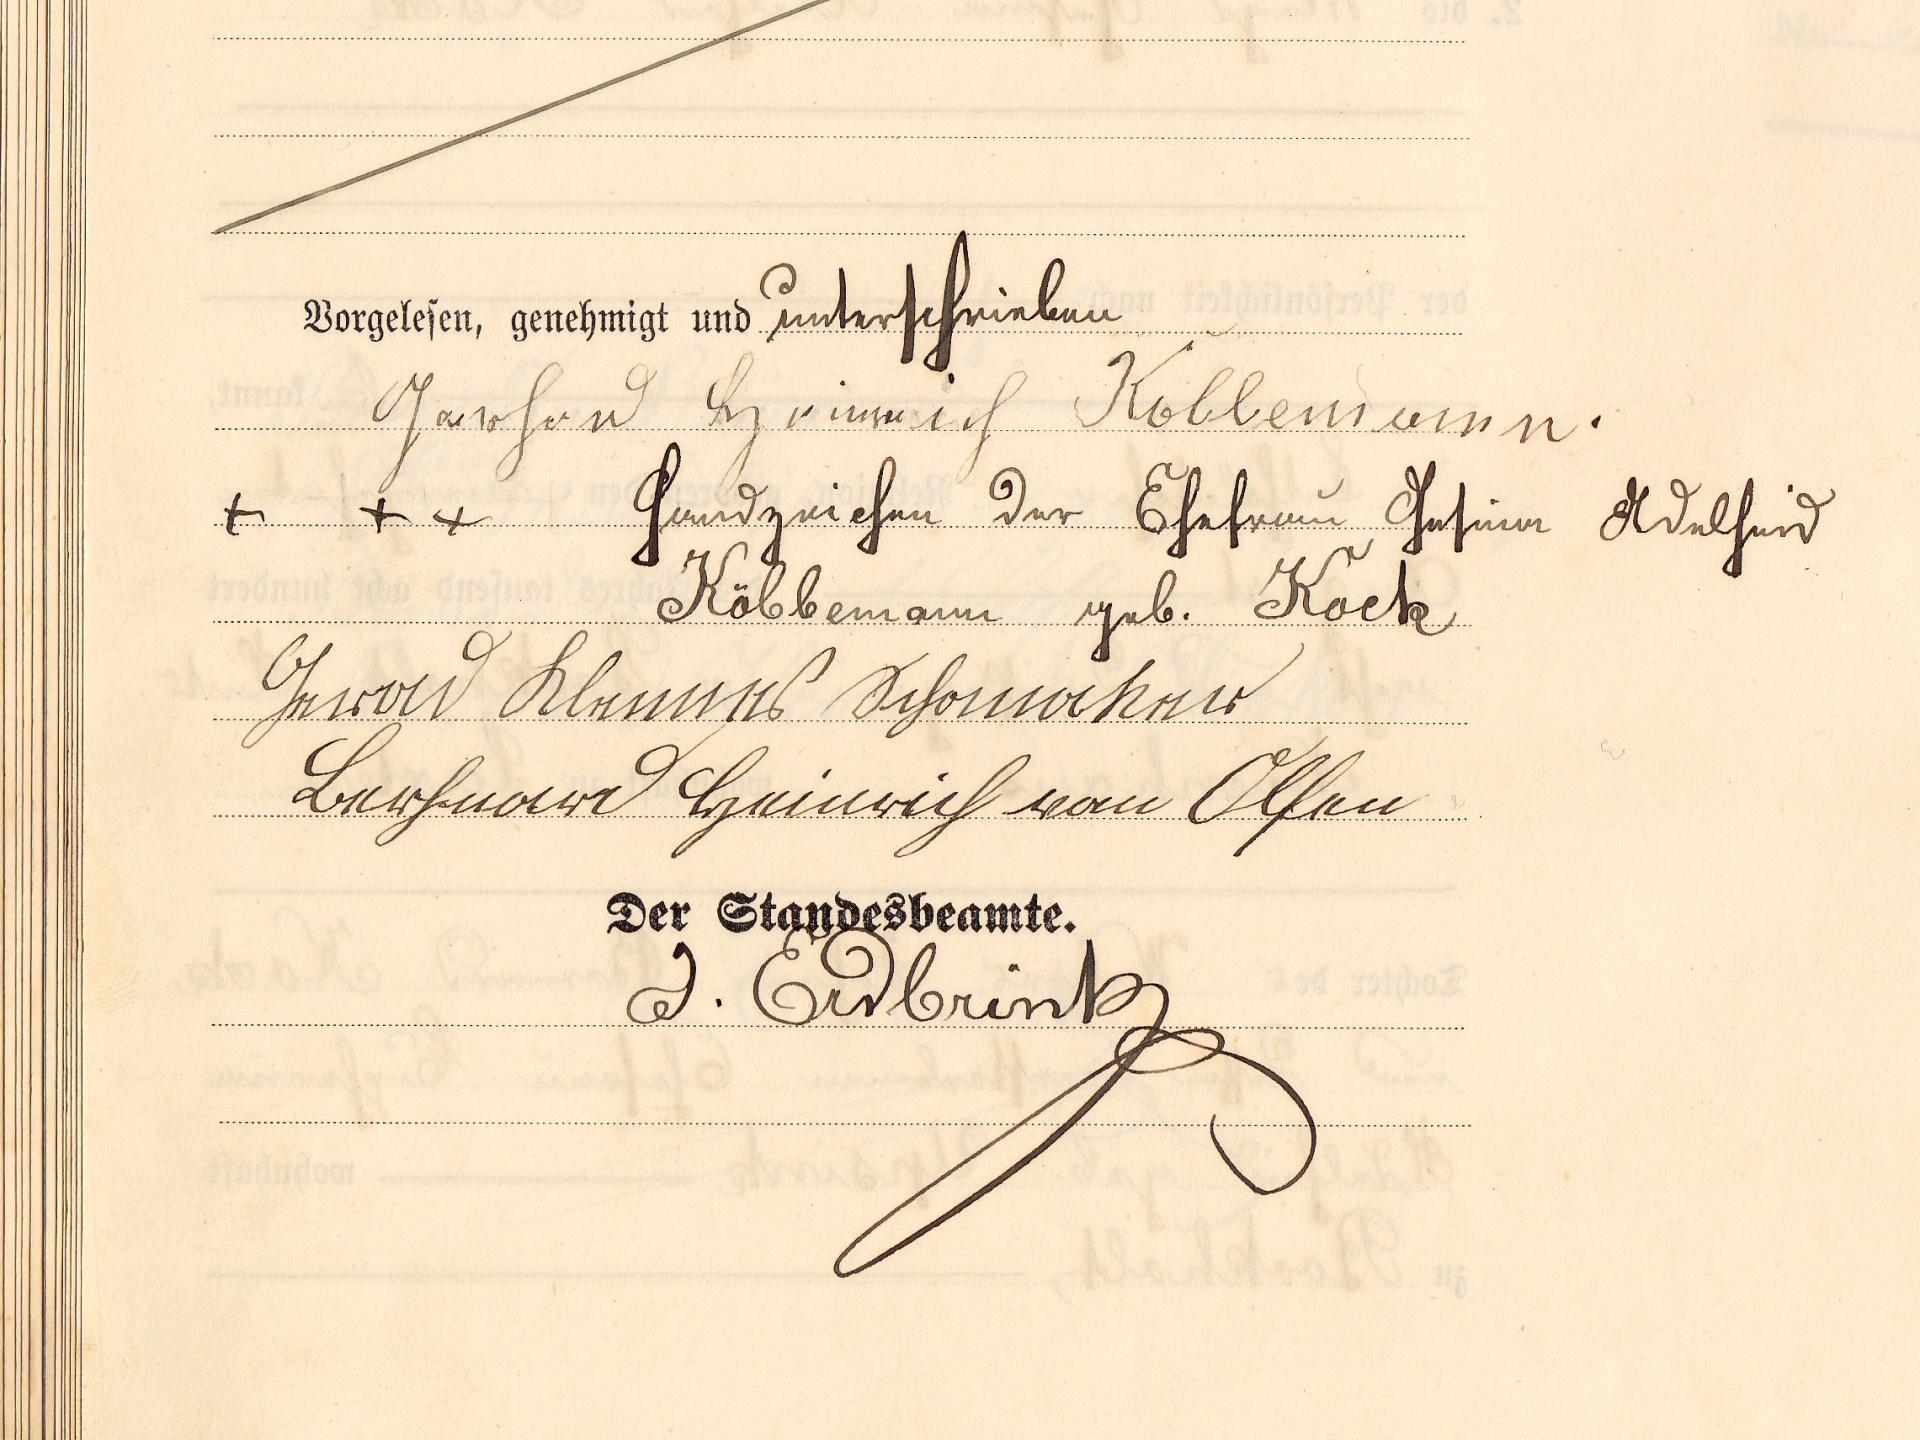 Vorgelesen, genehmigt und unterschrieben
Gerhard Heinrich Köbbemann.
+ + + Handzeichen der Ehefrau Gesina Adelheid
Köbbemann geb. Kock
Gerad Klemes Schomaker
Berhnard Heinrich von Olfen
Der Standesbeamte.
J. Erdbrink